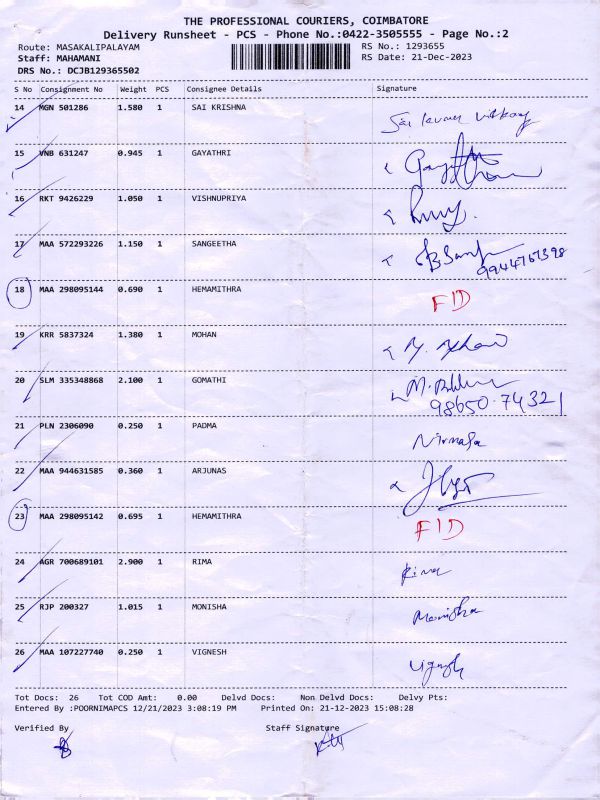 THE PROFESSIONAL COURIERS, COIMBATORE
Delivery Runsheet - PCS - Phone No.:0422-3505555 - Page No.:2
Route: MASAKALIPALAYAM RS No.: 1293655
Staff: MAHAMANI RS Date: 21-Dec-2023
DRS No.: DCJB129365502
S No Consignment No Weight PCS Consignee Details Signature
14 MGN 501286 1.580 1 SAI KRISHNA
15 VNB 631247 0.945 1 GAYATHRI
16 RKT 9426229 1.050 1 VISHNUPRIYA
17 MAA 572293226 1.150 1 SANGEETHA
9944767398
18 MAA 298095144 0.690 1 HEMAMITHRA FID
19 KRR 5837324 1.380 1 MOHAN
20 SLM 335348868 2.100 1 GOMATHI
98650.74321
21 PLN 2306090 0.250 1 PADMA Nirmala
22 MAA 944631585 0.360 1 ARJUNAS
23 MAA 298095142 0.695 1 HEMAMITHRA FID
24 AGR 700689101 2.900 1 RIMA Rima
25 RJP 200327 1.015 1 MONISHA Monisha
26 MAA 107227740 0.250 1 VIGNESH Vignesh
Tot Docs: 26 Tot COD Amt: 0.00 Delvd Docs: Non Delvd Docs: Delvy Pts:
Entered By :POORNIMAPCS 12/21/2023 3:08:19 PM Printed On: 21-12-2023 15:08:28
Verified By Staff Signature